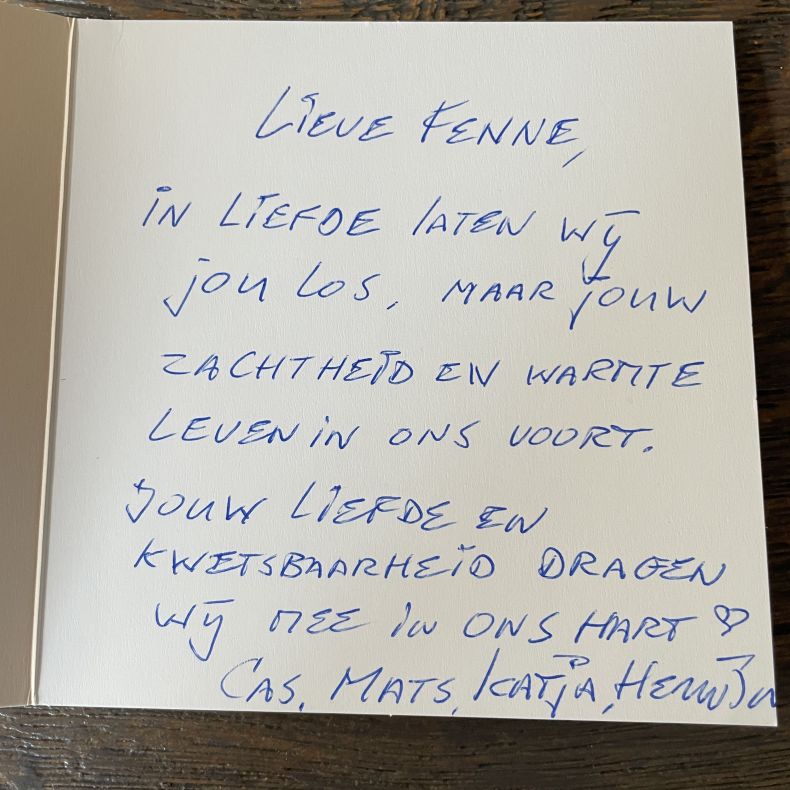 LIEVE FENNE,
IN LIEFDE LATEN WIJ
JOU LOS, MAAR JOUW
ZACHTHEID EN WARMTE
LEVEN IN ONS VOORT.
JOUW LIEFDE EN
KWETSBAARHEID DRAGEN
WIJ MEE IN ONS HART ♡
CAS, MATS, KATJA,